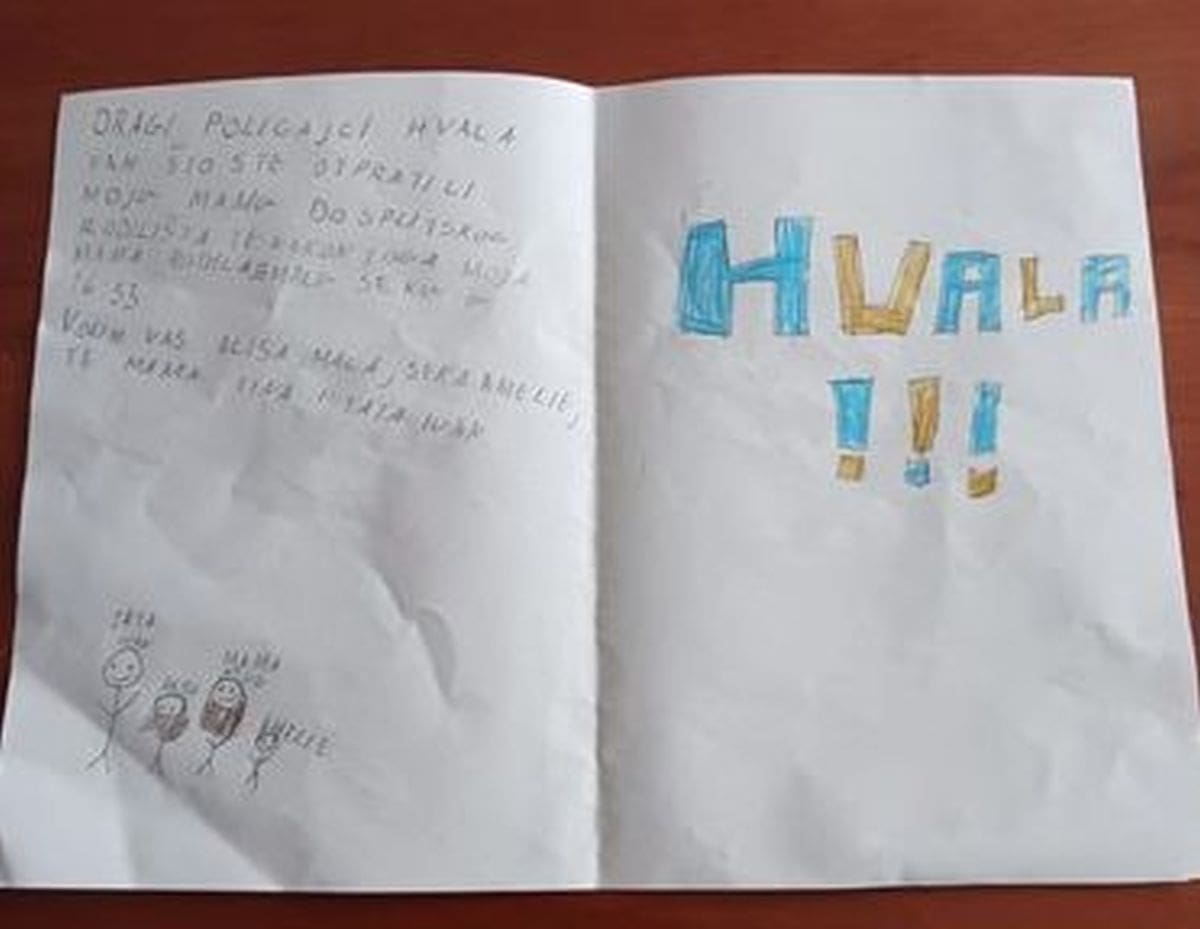 DRAGI POLICAJCI HVALA
VAM ŠTO STE OTPRATILI
MOJU MAMU DO SPLITSKOG
RODILIŠTA TE NAKON TOGA MOJA
MAMA SE
16 53
VOLIM VAS MALA, SEKA AMELIE,
TE MAMA TINA I TATA IVAN
TATA
MAMA
AMELIE
HVALA
!!!